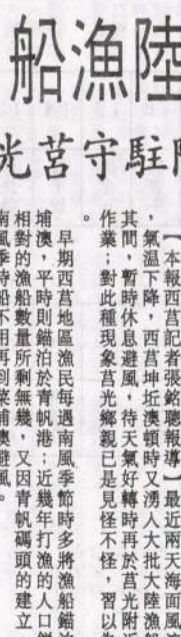 船漁陸
光莒守駐
【本報西莒記者張銘聰報導】最近兩天海面風
，氣温下降，西莒坤坵澳頓時又湧入大批大陸漁
其間，暫時休息避風，待天氣好轉時再於莒光附近
作業；對此種現象莒光鄉親已是見怪不怪，習以為
。
早期西莒地區漁民每遇南風季節時多將漁船錨
埔澳，平時則錨泊於青帆港；近幾年打漁的人口
相對的漁船數量所剩無幾，又因青帆碼頭的建立，
南風季時船不用再到菜埔澳避風。